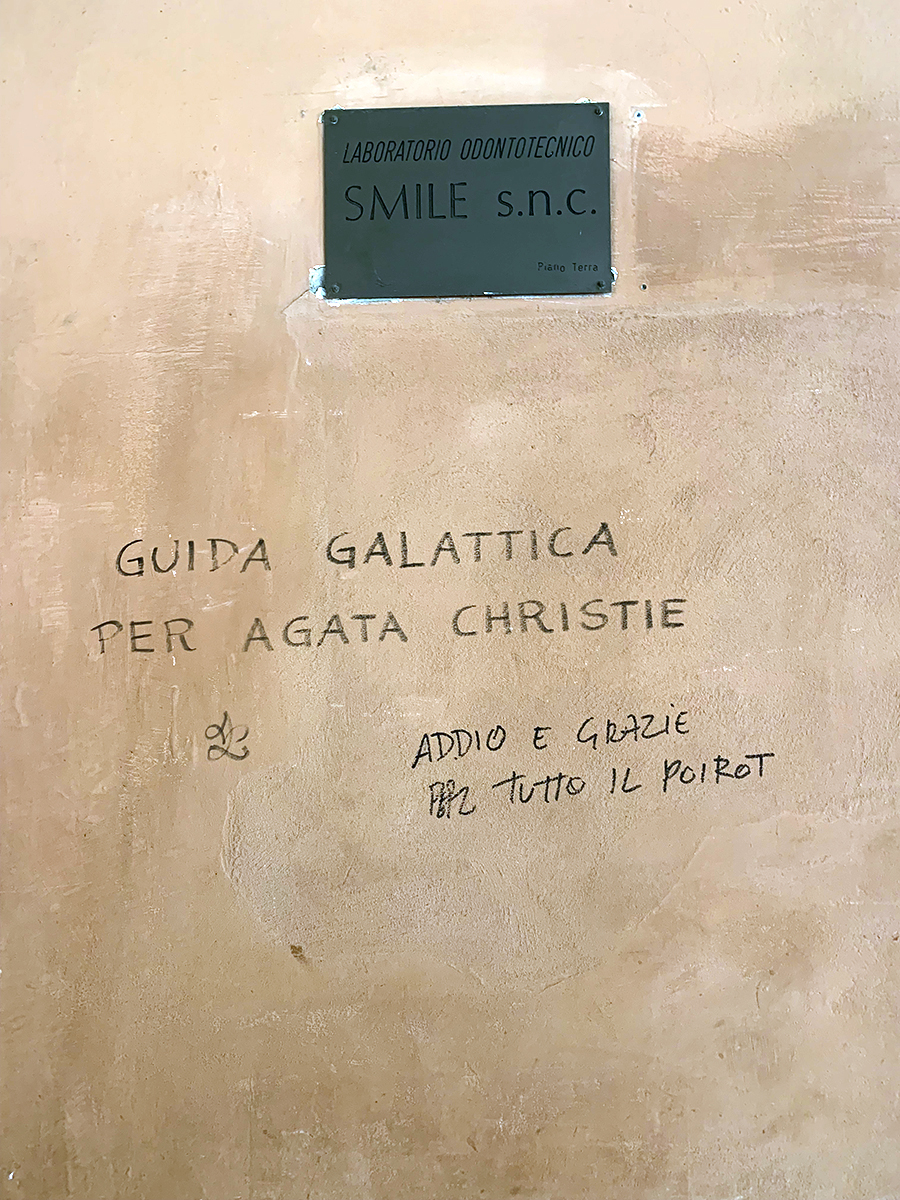 LABORATORIO ODONTOTECNICO
SMILE s.n.c.
Piano Terra
GUIDA GALATTICA
PER AGATA CHRISTIE
ADDIO E GRAZIE
TUTTO IL POIROT